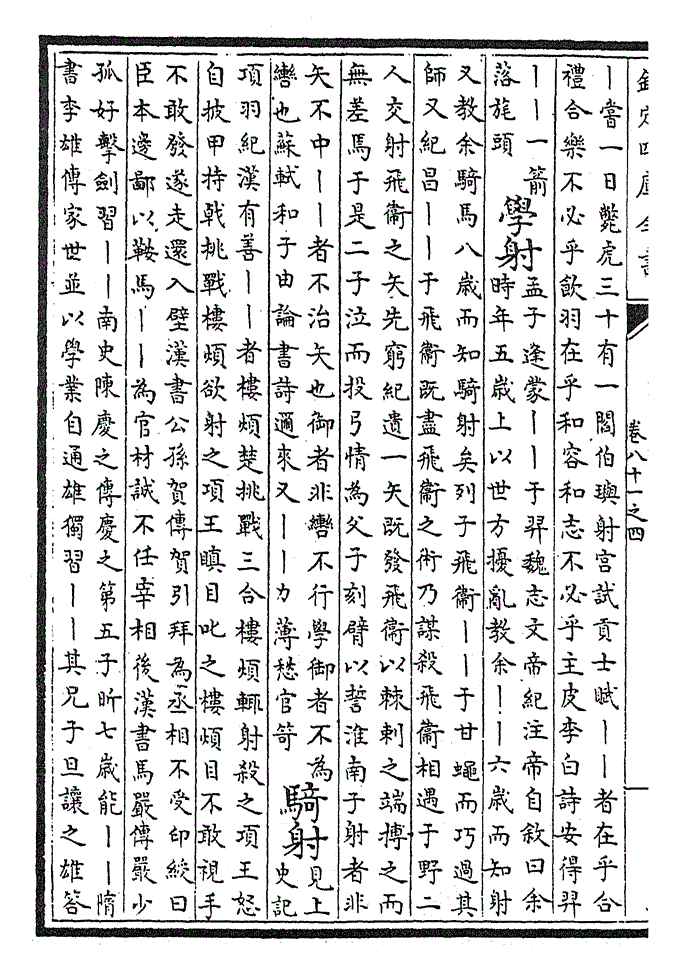 欽定四庫全書
卷八十一之四
丨嘗一日斃虎三十有一閻伯璵射宮試貢士賦丨丨者在乎合
禮合樂不必乎飲羽在乎和容和志不必乎主皮李白詩安得羿
丨丨一箭
落旄頭
學射
孟子逄蒙丨丨于羿魏志文帝紀注帝自敘曰余
時年五歲上以世方擾亂教余丨丨六歲而知射
又教余騎馬八歲而知騎射矣列子飛衞丨丨于甘蠅而巧過其
師又紀昌丨丨于飛衞既盡飛衞之術乃謀殺飛衞相遇于野二
人交射飛衞之矢先窮紀遺一矢既發飛衞以棘刺之端搏之而
無差焉于是二子泣而投弓情為父子刻臂以誓淮南子射者非
矢不中丨丨者不治矢也御者非轡不行學御者不為
轡也蘇軾和子由論書詩邇來又丨丨力薄愁官笴
騎射
見上
史記
項羽紀漢有善丨丨者樓煩楚挑戰三合樓煩輒射殺之項王怒
自披甲持戟挑戰樓煩欲射之項王瞋目叱之樓煩目不敢視手
不敢發遂走還入壁漢書公孫賀傳賀引拜為丞相不受印綬曰
臣本邊鄙以鞍馬丨丨為官材誠不任宰相後漢書馬嚴傳嚴少
孤好擊劍習丨丨南史陳慶之傳慶之第五子昕七歲能丨丨隋
書李雄傳家世並以學業自通雄獨習丨丨其兄子旦讓之雄答